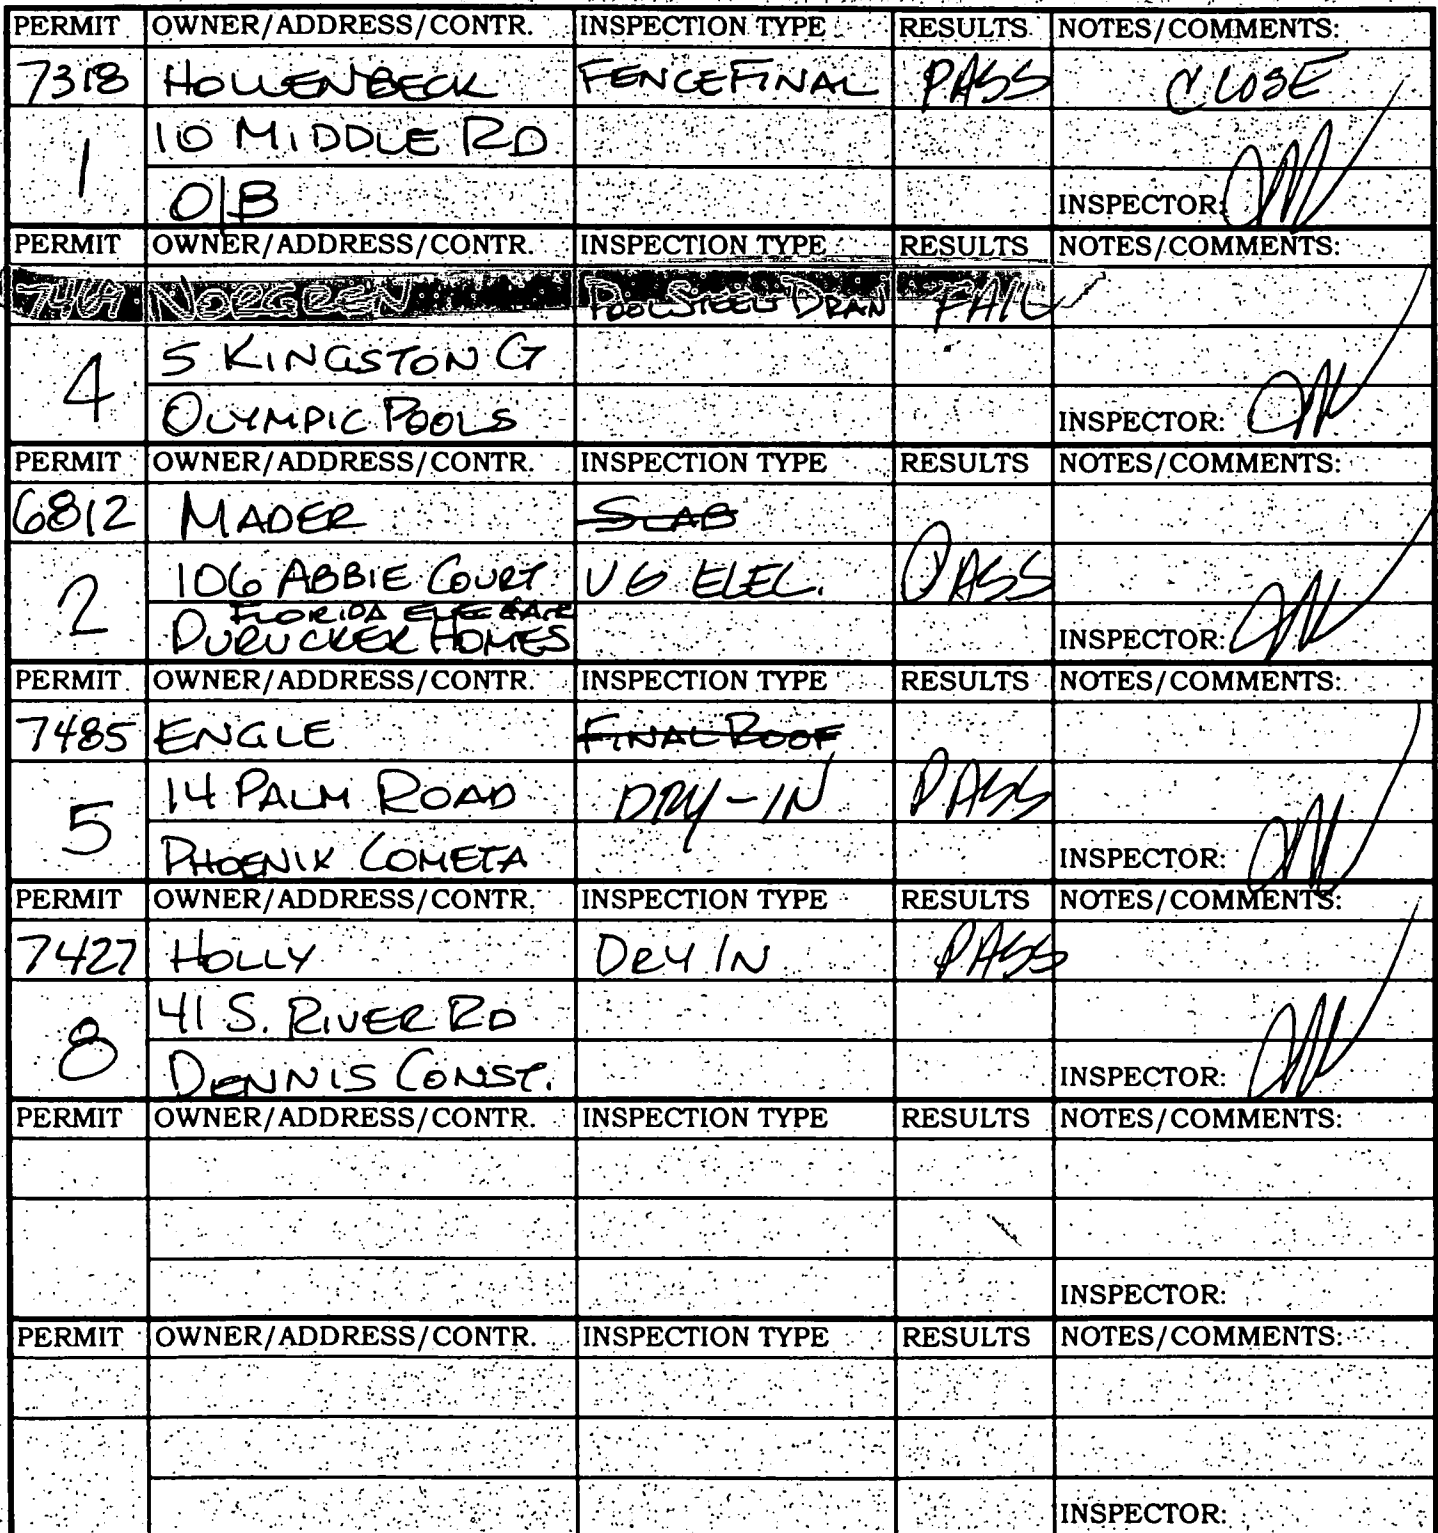 PERMIT OWNER/ADDRESS/CONTR. INSPECTION TYPE RESULTS NOTES/COMMENTS:
7318 HOLLENBECK FENCE FINAL PASS CLOSE
1 10 MIDDLE RD
O/B INSPECTOR:
PERMIT OWNER/ADDRESS/CONTR. INSPECTION TYPE RESULTS NOTES/COMMENTS:
7469 NOEGREEN POOL STEEL DRAN FAIL
4 5 KINGSTON G
OLYMPIC POOLS INSPECTOR:
PERMIT OWNER/ADDRESS/CONTR. INSPECTION TYPE RESULTS NOTES/COMMENTS:
6812 MADER SLAB
2 106 ABBIE COURT UG ELEC. PASS
FLORIDA
DURUCKER HOMES INSPECTOR:
PERMIT OWNER/ADDRESS/CONTR. INSPECTION TYPE RESULTS NOTES/COMMENTS:
7485 ENGLE FINAL ROOF
5 14 PALM ROAD DRY-IN PASS
PHOENIX COMETA INSPECTOR:
PERMIT OWNER/ADDRESS/CONTR. INSPECTION TYPE RESULTS NOTES/COMMENTS:
7427 HOLLY DRY IN PASS
8 41 S. RIVER RD
DENNIS CONST. INSPECTOR:
PERMIT OWNER/ADDRESS/CONTR. INSPECTION TYPE RESULTS NOTES/COMMENTS:
INSPECTOR:
PERMIT OWNER/ADDRESS/CONTR. INSPECTION TYPE RESULTS NOTES/COMMENTS:
INSPECTOR: